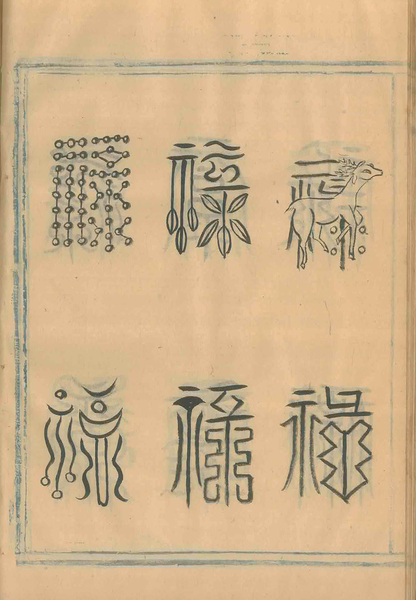 祿
祿
祿
祿
祿
祿